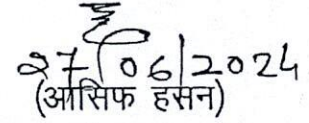 27/06/2024
(आसिफ हसन)